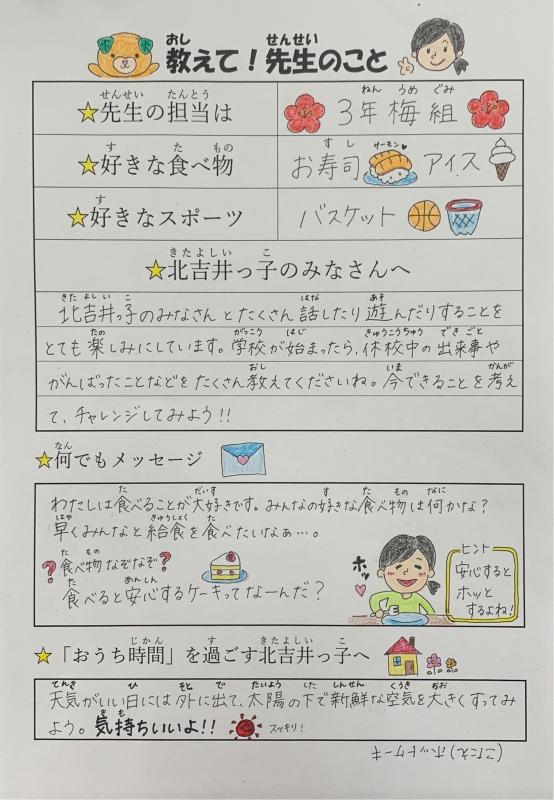 教えて！先生のこと
★先生の担当は
3年梅組
★好きな食べ物
お寿司 サーモン アイス
★好きなスポーツ
バスケット
★北吉井っ子のみなさんへ
北吉井っ子のみなさんとたくさん話したり遊んだりすることを
とても楽しみにしています。学校が始まったら、休校中の出来事や
がんばったことなどをたくさん教えてくださいね。今できることを考え
て、チャレンジしてみよう!!
★何でもメッセージ
わたしは食べることが大好きです。みんなの好きな食べ物は何かな？
早くみんなと給食を食べたいなぁ…。
？食べ物なぞなぞ？
食べると安心するケーキってなーんだ？
ホッ
ヒント
安心すると
ホッと
するよね!
★「おうち時間」を過ごす北吉井っ子へ
天気がいい日には外に出て、太陽の下で新鮮な空気を大きくすってみ
よう。気持ちいいよ!! スッキリ!
(こたえ)ホットケーキ